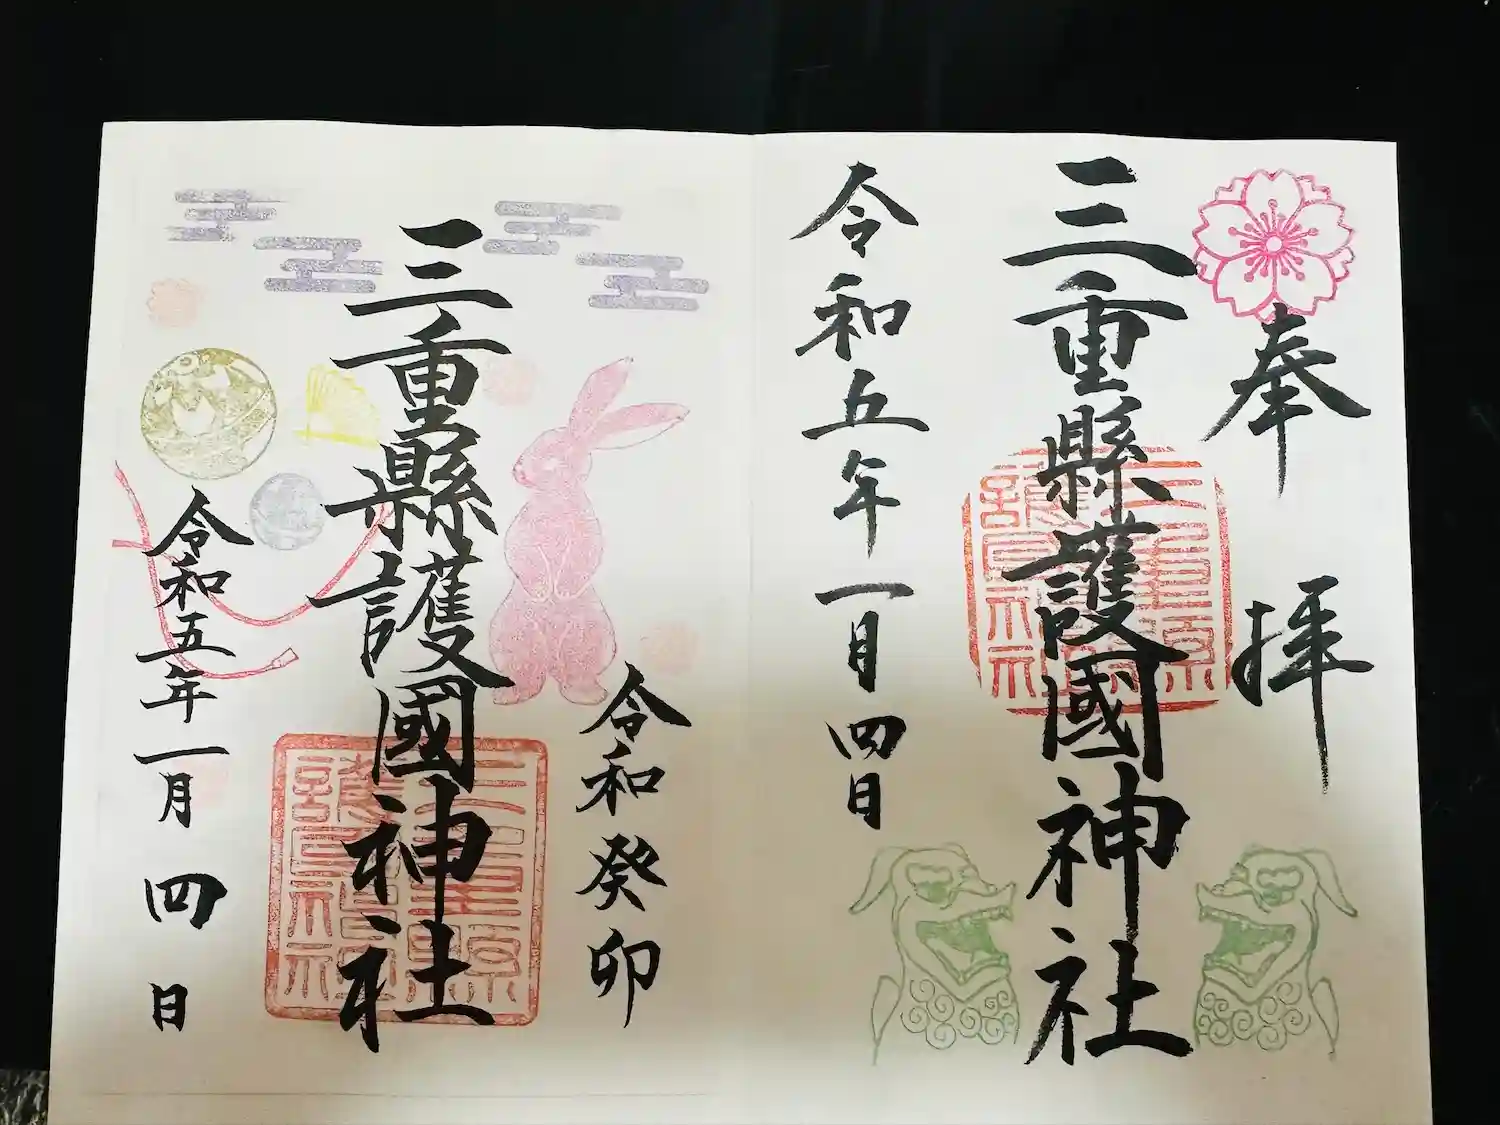 奉拝
三重縣護國神社
令和五年一月四日
令和癸卯
三重縣護國神社
令和五年一月四日